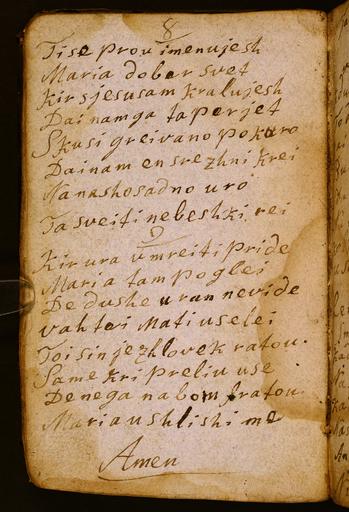 8
Tise prov imenujesh
Maria dober svet
Kirsjesusam Kralujesh
Dai namga ta perjet
Skusi greivano pokuro
Dainam en srezhni krei
Nanashosadno uro
Ta sveiti nebeshki rei
9
Kir ura vmreiti pride
Maria tam poglei
De dushe uran nevide
vahtei Mati uselei
Toi sin je zhlovek ratou.
Same kri preliu use
De nega nabom tratou.
Maria ushlishi me
Amen